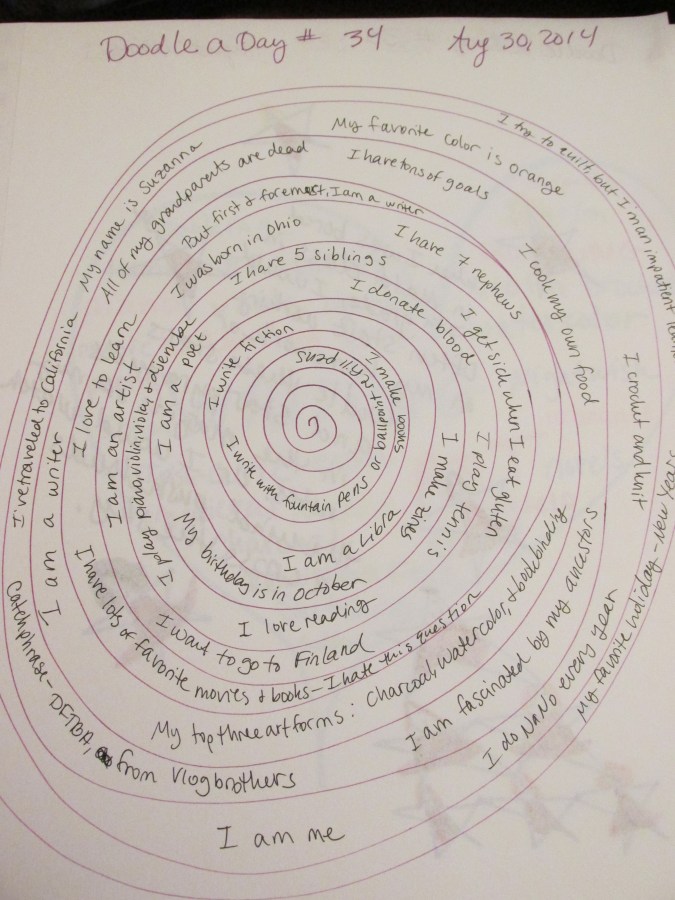 Doodle a Day # 34 Aug 30, 2014
I try to quilt, but I'm an impatient
My favorite color is orange
My name is Suzanna
I've traveled to California
Catchphrase - DFTBA, from Vlogbrothers
I am me
My favorite holiday - New Years
I crochet and knit
I have tons of goals
All of my grandparents are dead
I am a writer
I cook my own food
I do NaNo every year
But first & foremost, I am a writer
I love to learn
I have lots of favorite movies & books - I hate this question
My top three art forms: Charcoal, watercolor, & bookbinding
I am fascinated by my ancestors
I have 7 nephews
I was born in Ohio
I am an artist
I want to go to Finland
I get sick when I eat gluten
I have 5 siblings
I play piano, violin, viola, & djembe
I love reading
I play tennis
I donate blood
I am a poet
My birthday is in October
I make zines
I write fiction
I am a Libra
I make books
I write with fountain pens or ballpoint
pens